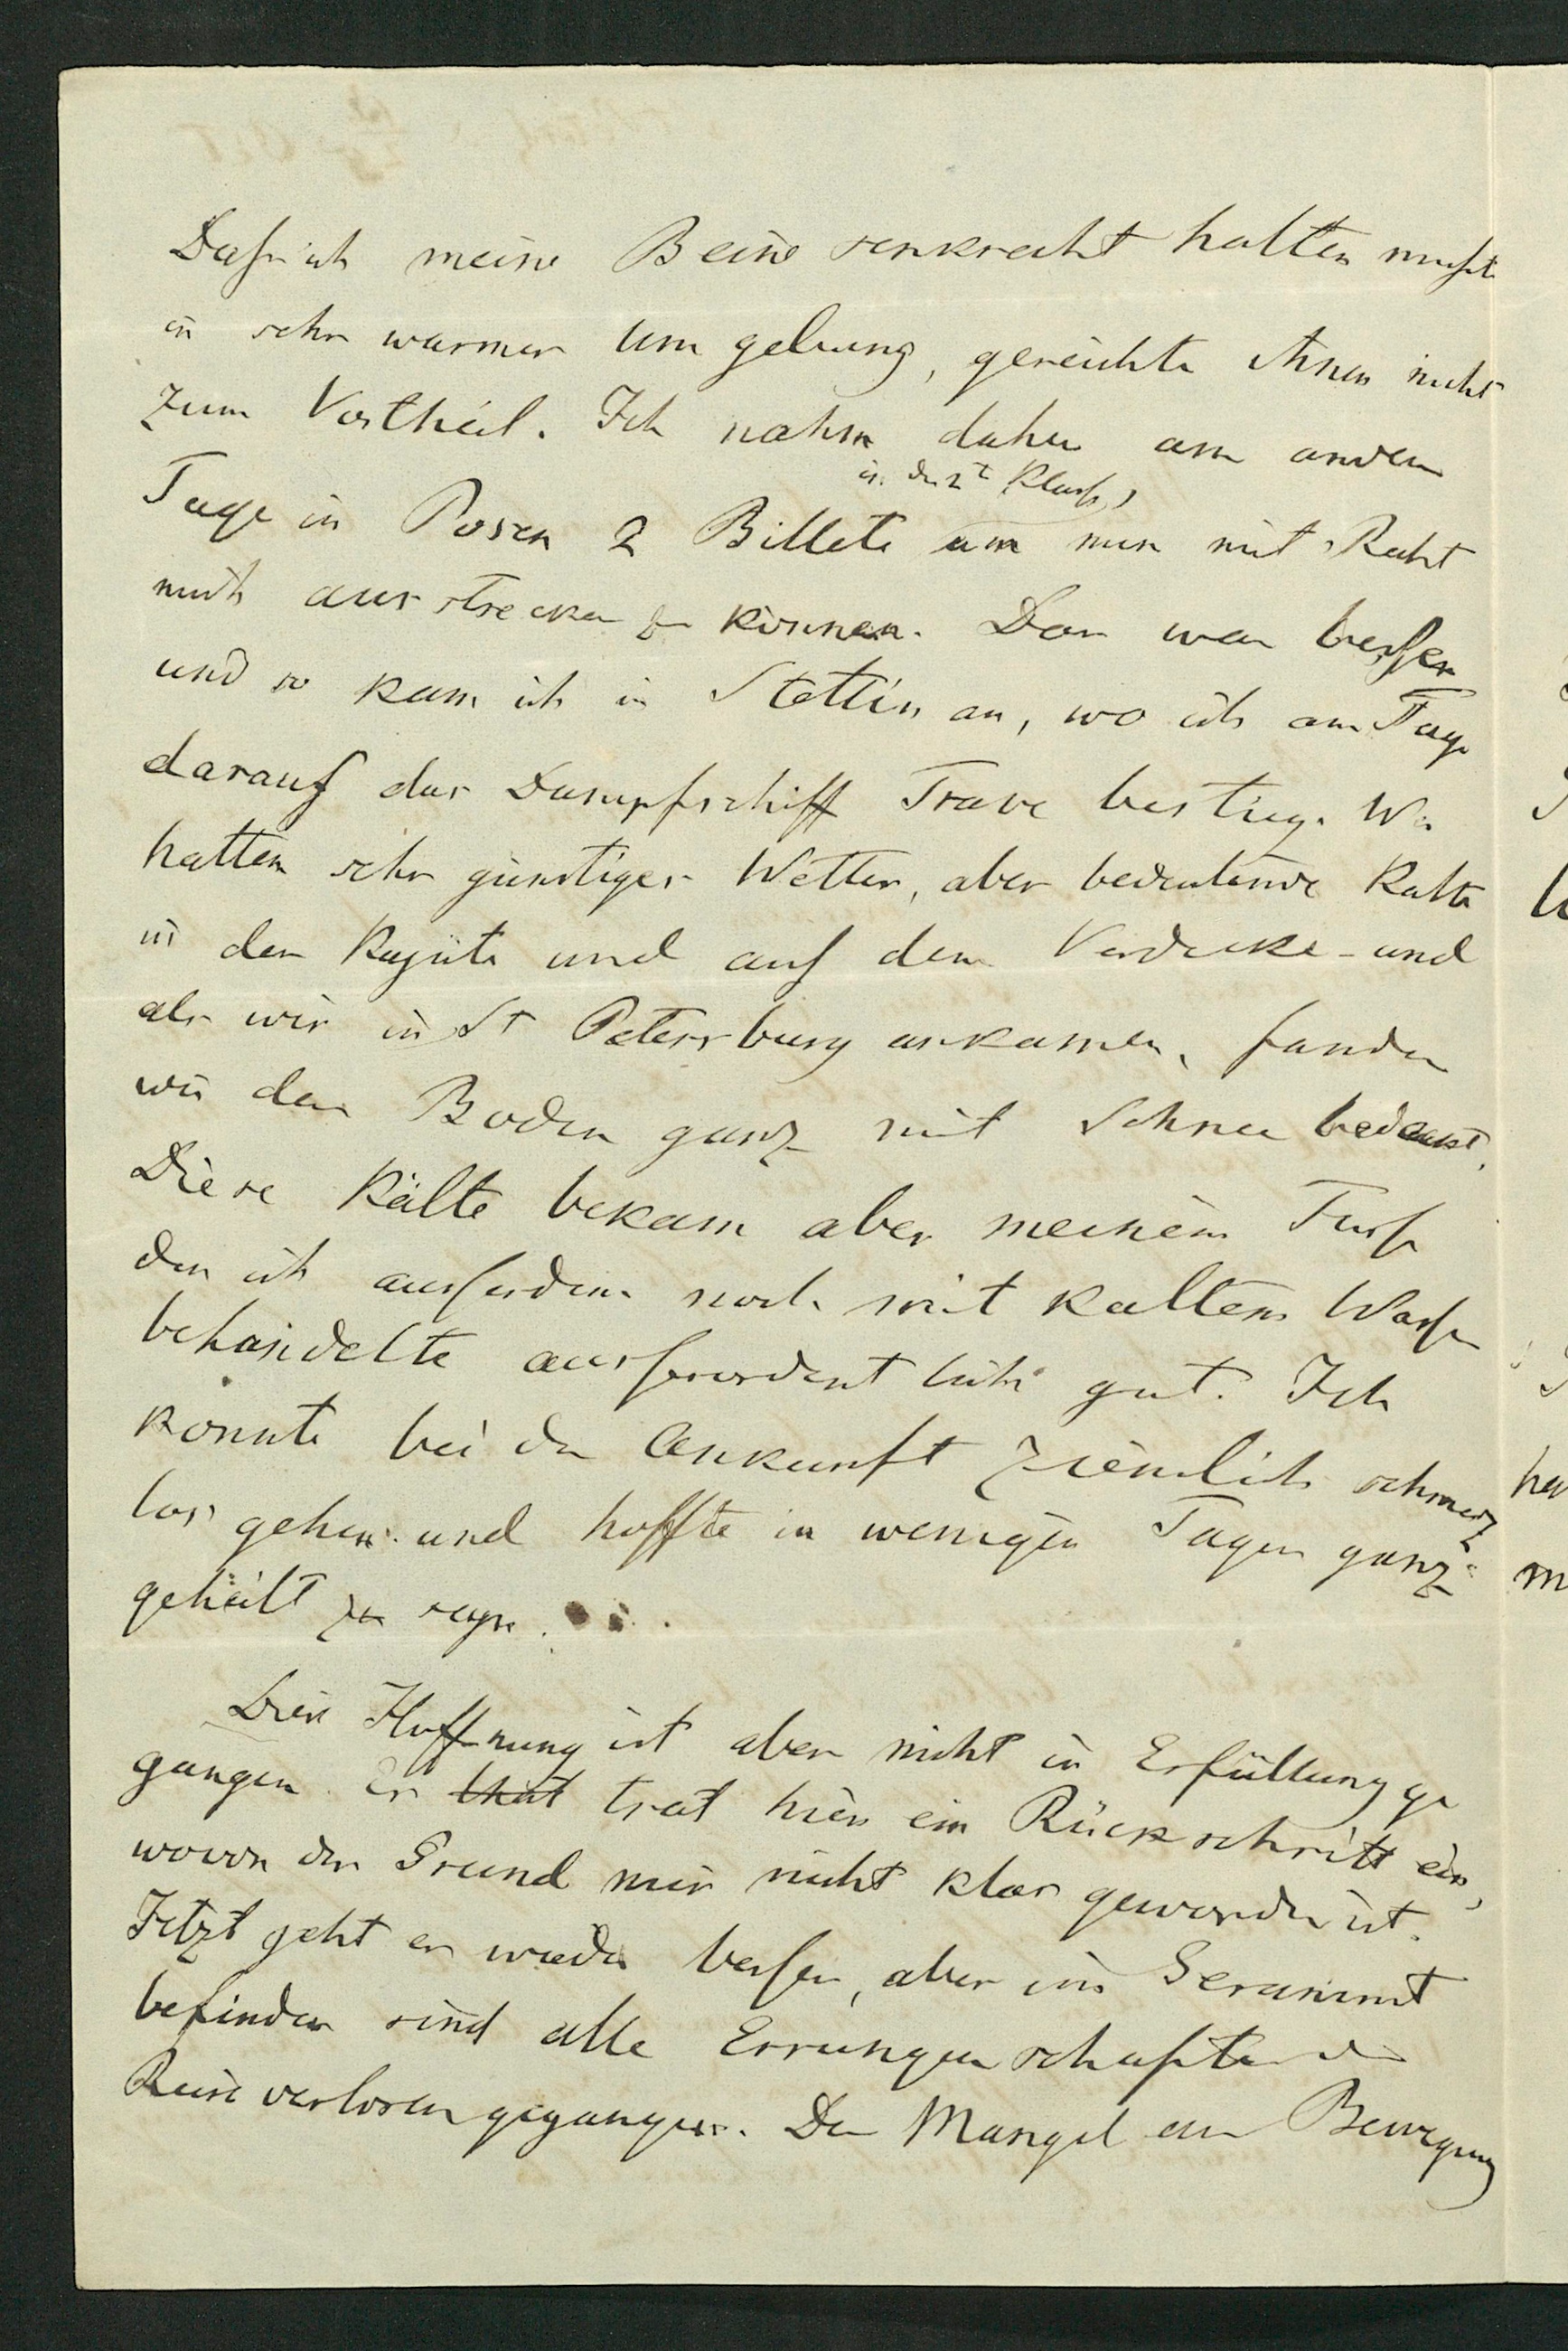 Daß ich meine Beine senkrecht halten mußte
in sehr warmer Umgebung, gereichte ihnen nicht
zum Vortheil. Ich nahm daher am andern
in der 2t Klasse,
Tage in Posen 2 Billete um nun mit Recht
mich ausstrecken zu können. Das war besser
und so kam ich in Stettin an, wo ich am Tage
darauf das Dampfschiff Trave bestieg. Wir
hatten sehr günstiges Wetter, aber bedeutende Kälte
in der Kajüte und auf dem Verdecke - und
als wir in St Petersburg ankamen, fanden
wir den Boden ganz mit Schnee bedeckt.
Diese Kälte bekam aber meinem Fuße
den ich außerdem noch mit kaltem Wasser
behandelte außerordentlich gut. Ich
konnte bei der Ankunft ziemlich schmerz
los gehen und hoffte in wenigen Tagen ganz
geheilt zu seyn.
Diese Hoffnung ist aber nicht in Erfüllung ge
gangen. Es that trat hier ein Rückschritt ein,
wovon der Grund mir nicht klar geworden ist.
Jetzt geht es wieder besser, aber im Gesammt
befinden sind alle Errungenschaften der
Reise verloren gegangen. Der Mangel an Bewegung